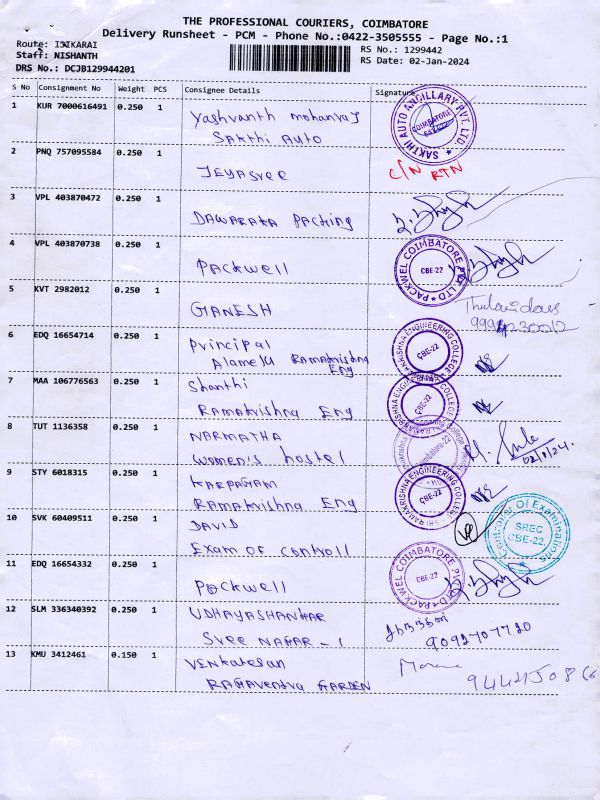 THE PROFESSIONAL COURIERS, COIMBATORE
Delivery Runsheet - PCM - Phone No.:0422-3505555 - Page No.:1
Route: IDIKARAI
Staff: NISHANTH
DRS No.: DCJB129944201
RS No.: 1299442
RS Date: 02-Jan-2024
S No Consignment No Weight PCS Consignee Details Signature
1 KUR 7000616491 0.250 1 Yashvanth mohanraj
Sakthi Auto
SAKTHI AUTO ANCILLARY PVT. LTD.
COIMBATORE
2 PNQ 757095584 0.250 1 JEYASree C/N RTN
3 VPL 403870472 0.250 1 DAWARAKA Packing
4 VPL 403870738 0.250 1 Packwell
PACKWEL COIMBATORE PVT LTD
CBE-22
5 KVT 2982012 0.250 1 GANESH
6 EDQ 16654714 0.250 1 Principal
Alamelu Ramakrishna
Eng
RAMAKRISHNA ENGINEERING COLLEGE
CBE-22
7 MAA 106776563 0.250 1 Shanthi
Ramakrishna Eng
CBE-22
8 TUT 1136358 0.250 1 NARMATHA
women's hostel
02/1/24.
9 STY 6018315 0.250 1 KARPAGAM
Ramakrishna Eng
SRI RAMAKRISHNA ENGINEERING COLLEGE
CBE-22
10 SVK 60409511 0.250 1 DAVID
Exam of controll
Controller Of Examinations
SREC
CBE-22
11 EDQ 16654332 0.250 1 Packwell
PACKWEL COIMBATORE PVT LTD
CBE-22
12 SLM 336340392 0.250 1 UDHAYASHANKAR
Sree NAGAR - 1
9092707720
13 KMU 3412461 0.150 1 Venkatesan
RAGAVendra GARDEN